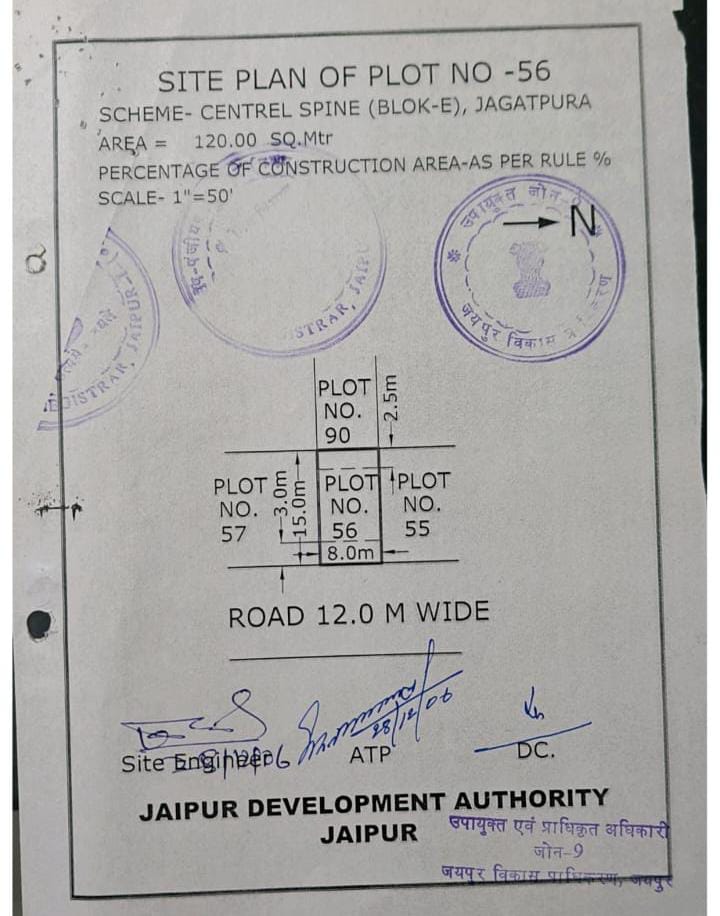 SITE PLAN OF PLOT NO -56
SCHEME- CENTREL SPINE (BLOK-E), JAGATPURA
AREA = 120.00 SQ.Mtr
PERCENTAGE OF CONSTRUCTION AREA-AS PER RULE %
SCALE- 1"=50'
उपायुक्त जोन
N
जयपुर विकास
ISTRAR, JAIPU
ISTRAR, JAIPUR
PLOT
NO.
90
2.5m
PLOT
NO.
57
3.0m
15.0m
PLOT
NO.
56
8.0m
PLOT
NO.
55
ROAD 12.0 M WIDE
Site Engineer
ATP
DC.
JAIPUR DEVELOPMENT AUTHORITY
JAIPUR
उपायुक्त एवं प्राधिकृत अधिकारी
जोन-9
जयपुर विकास प्राधिकरण, जयपुर